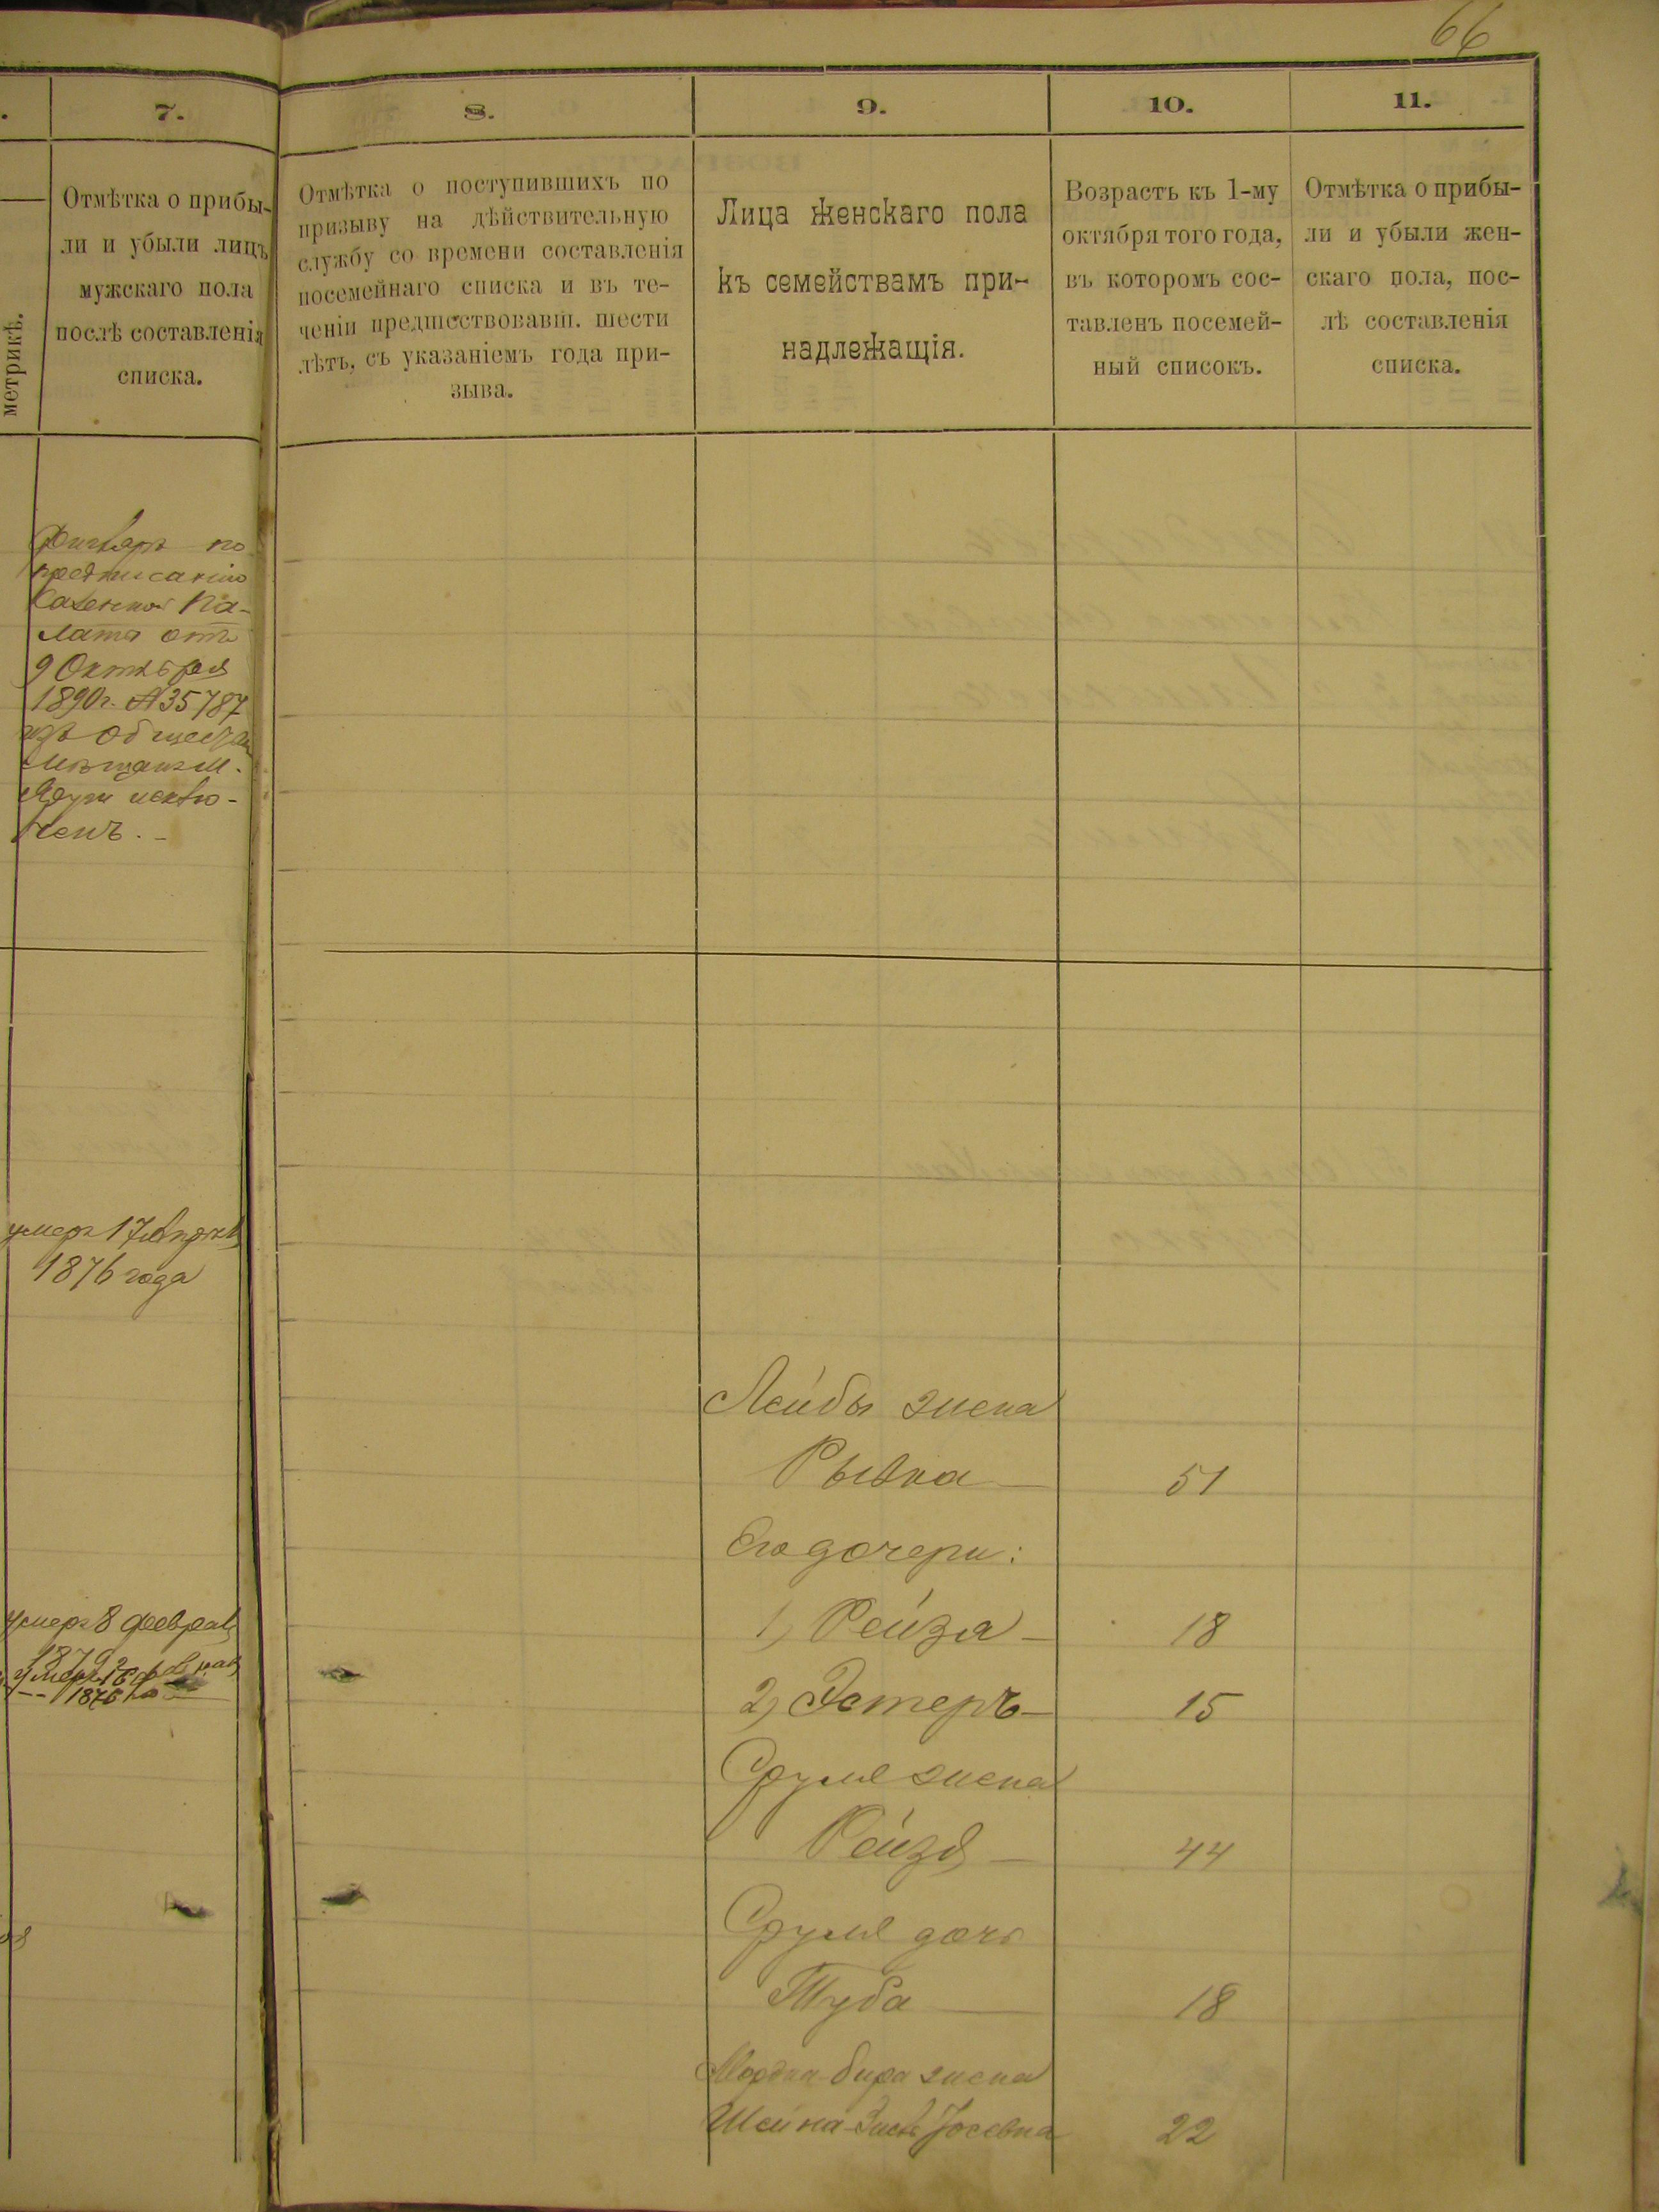 66
7.
8.
9.
10.
11.
метрикѣ.
Отмѣтка о прибы-
ли и убыли лицъ
мужскаго пола
послѣ составленія
списка.
Отмѣтка о поступившихъ по
призыву на дѣйствительную
службу со времени составленія
посемейнаго списка и въ те-
ченіи предшествовавш. шести
лѣтъ, съ указаніемъ года при-
зыва.
Лица женскаго пола
къ семействамъ при-
надлежащія.
Возрастъ къ 1-му
октября того года,
въ которомъ сос-
тавленъ посемей-
ный списокъ.
Отмѣтка о прибы-
ли и убыли жен-
скаго пола, пос-
лѣ составленія
списка.
по
предписанію
Казенной Па-
латы отъ
9 Октября
1890г. №35787
изъ
исклю-
ченъ. -
умеръ 17 Апрѣля
1876 года
умеръ 8 февраля
1879
умеръ 16
1876
Лейбы жена
Рывка 51
Его дочери:
1) Рейза 18
2) Эстеръ 15
Сруля жена
Рейзя 44
Сруля дочь
Туба 18
Мордка-бира жена
Шейна Іосевна 22